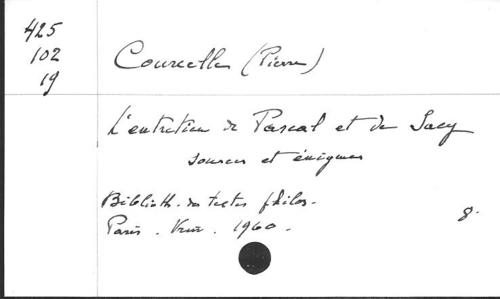 425
102
19
Courcelle (Pierre)
L'entretien de Pascal et de Sacy
sources et énigmes
Biblioth. des textes philos.
Paris. Vrin. 1960.
8.